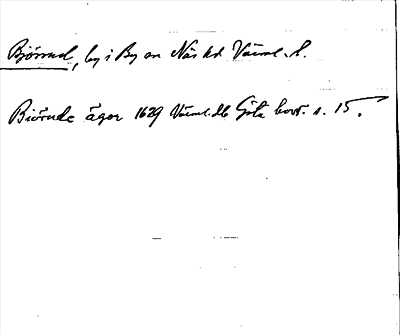 Björrud, by i By sn Näs hd Värml. l.
Biörude ägor 1629 Värml.db Göta hovr. s. 15.